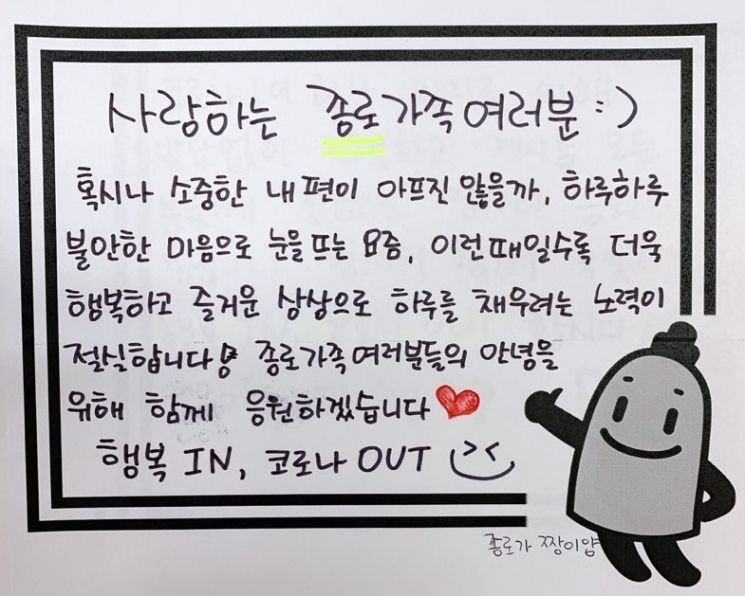 사랑하는 종로가족여러분 :)
혹시나 소중한 내편이 아프진 않을까, 하루하루
불안한 마음으로 눈을 뜨는 요즘, 이런때일수록 더욱
행복하고 즐거운 상상으로 하루를 채우려는 노력이
절실합니다! 종로가족여러분들의 안녕을
위해 함께 응원하겠습니다 ♥
행복 IN, 코로나 OUT
종로가 짱이얌